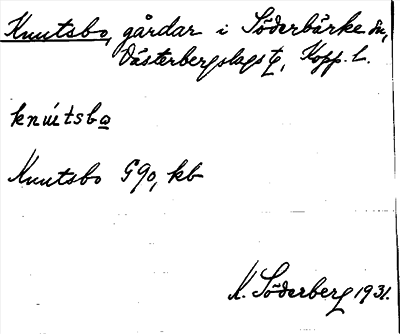 Knutsbo, gårdar i Söderbärke sn,
Västerbergslags tg, Kopp. l.
knútsbo
Knutsbo G90, kb
K. Söderberg 1931.